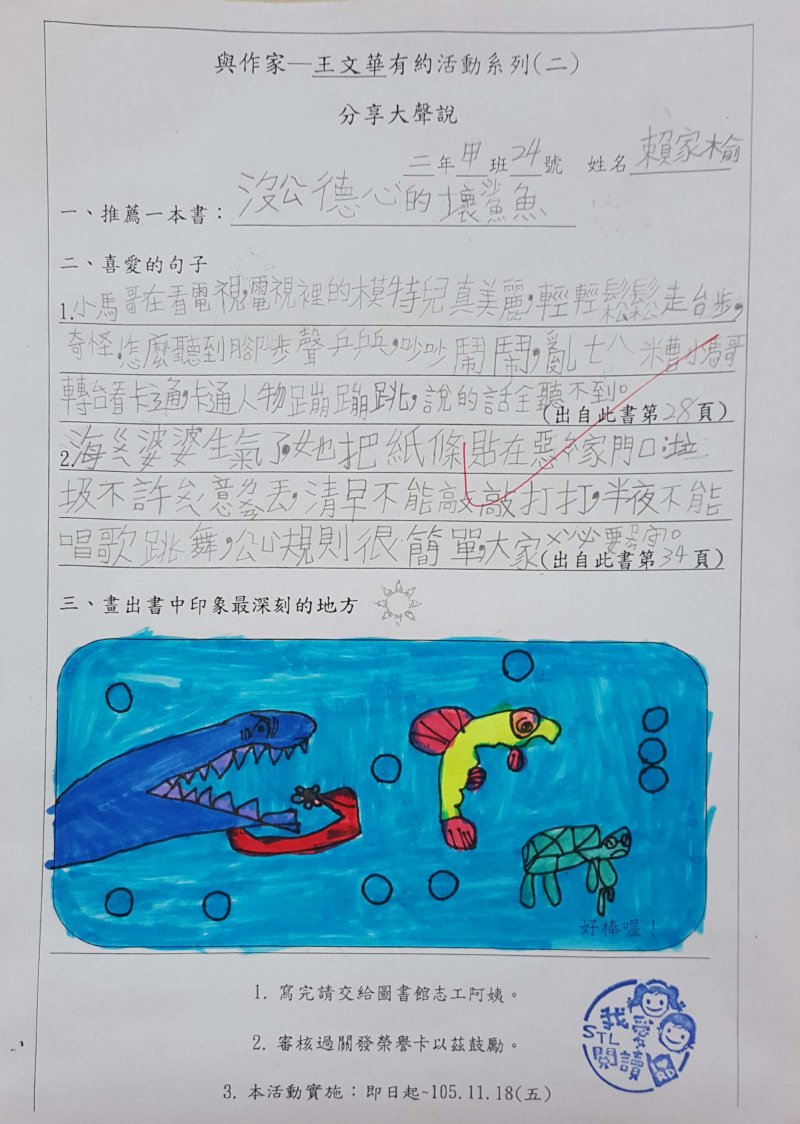 與作家—王文華有約活動系列(二)
分享大聲說
二年甲班24號 姓名賴家榆
一、推薦一本書：沒公德心的壞鯊魚
二、喜愛的句子
1.小馬哥在看電視,電視裡的模特兒真美麗,輕輕鬆鬆走台步,
奇怪,怎麼聽到腳步聲乒乒乓,吵吵鬧鬧,亂七八糟小馬哥
轉台看卡通,卡通人物蹦蹦跳,說的話全聽不到。
(出自此書第28頁)
2.海ㄗ婆婆生氣了,她把紙條貼在惡ㄌ家門口:垃
圾不許ㄙㄨㄟ意ㄌㄢ丟,清早不能敲敲打打,半夜不能
唱歌跳舞,公ㄍㄨㄥ規則很簡單,大家必要守。
(出自此書第34頁)
三、畫出書中印象最深刻的地方
好棒喔！
1. 寫完請交給圖書館志工阿姨。
2. 審核過關發榮譽卡以茲鼓勵。
3. 本活動實施：即日起~105.11.18(五)
我愛
STL
閱讀